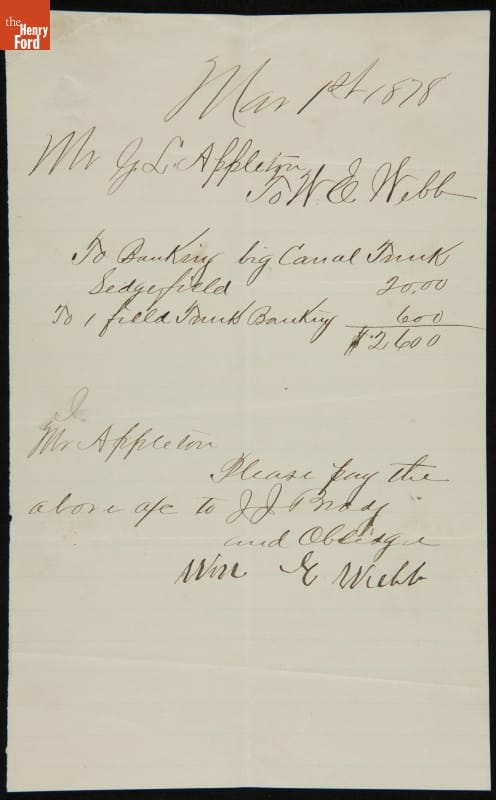 the
Henry
Ford
Mar 1st 1878
Mr J. L. Appleton
To W E Webb
To Banking big Canal Trunk
Sedgefield 20.00
To 1 field Trunk Banking 600
$2600
Mr Appleton
Please pay the
above a/c to J J
and Obledge
Wm E Webb